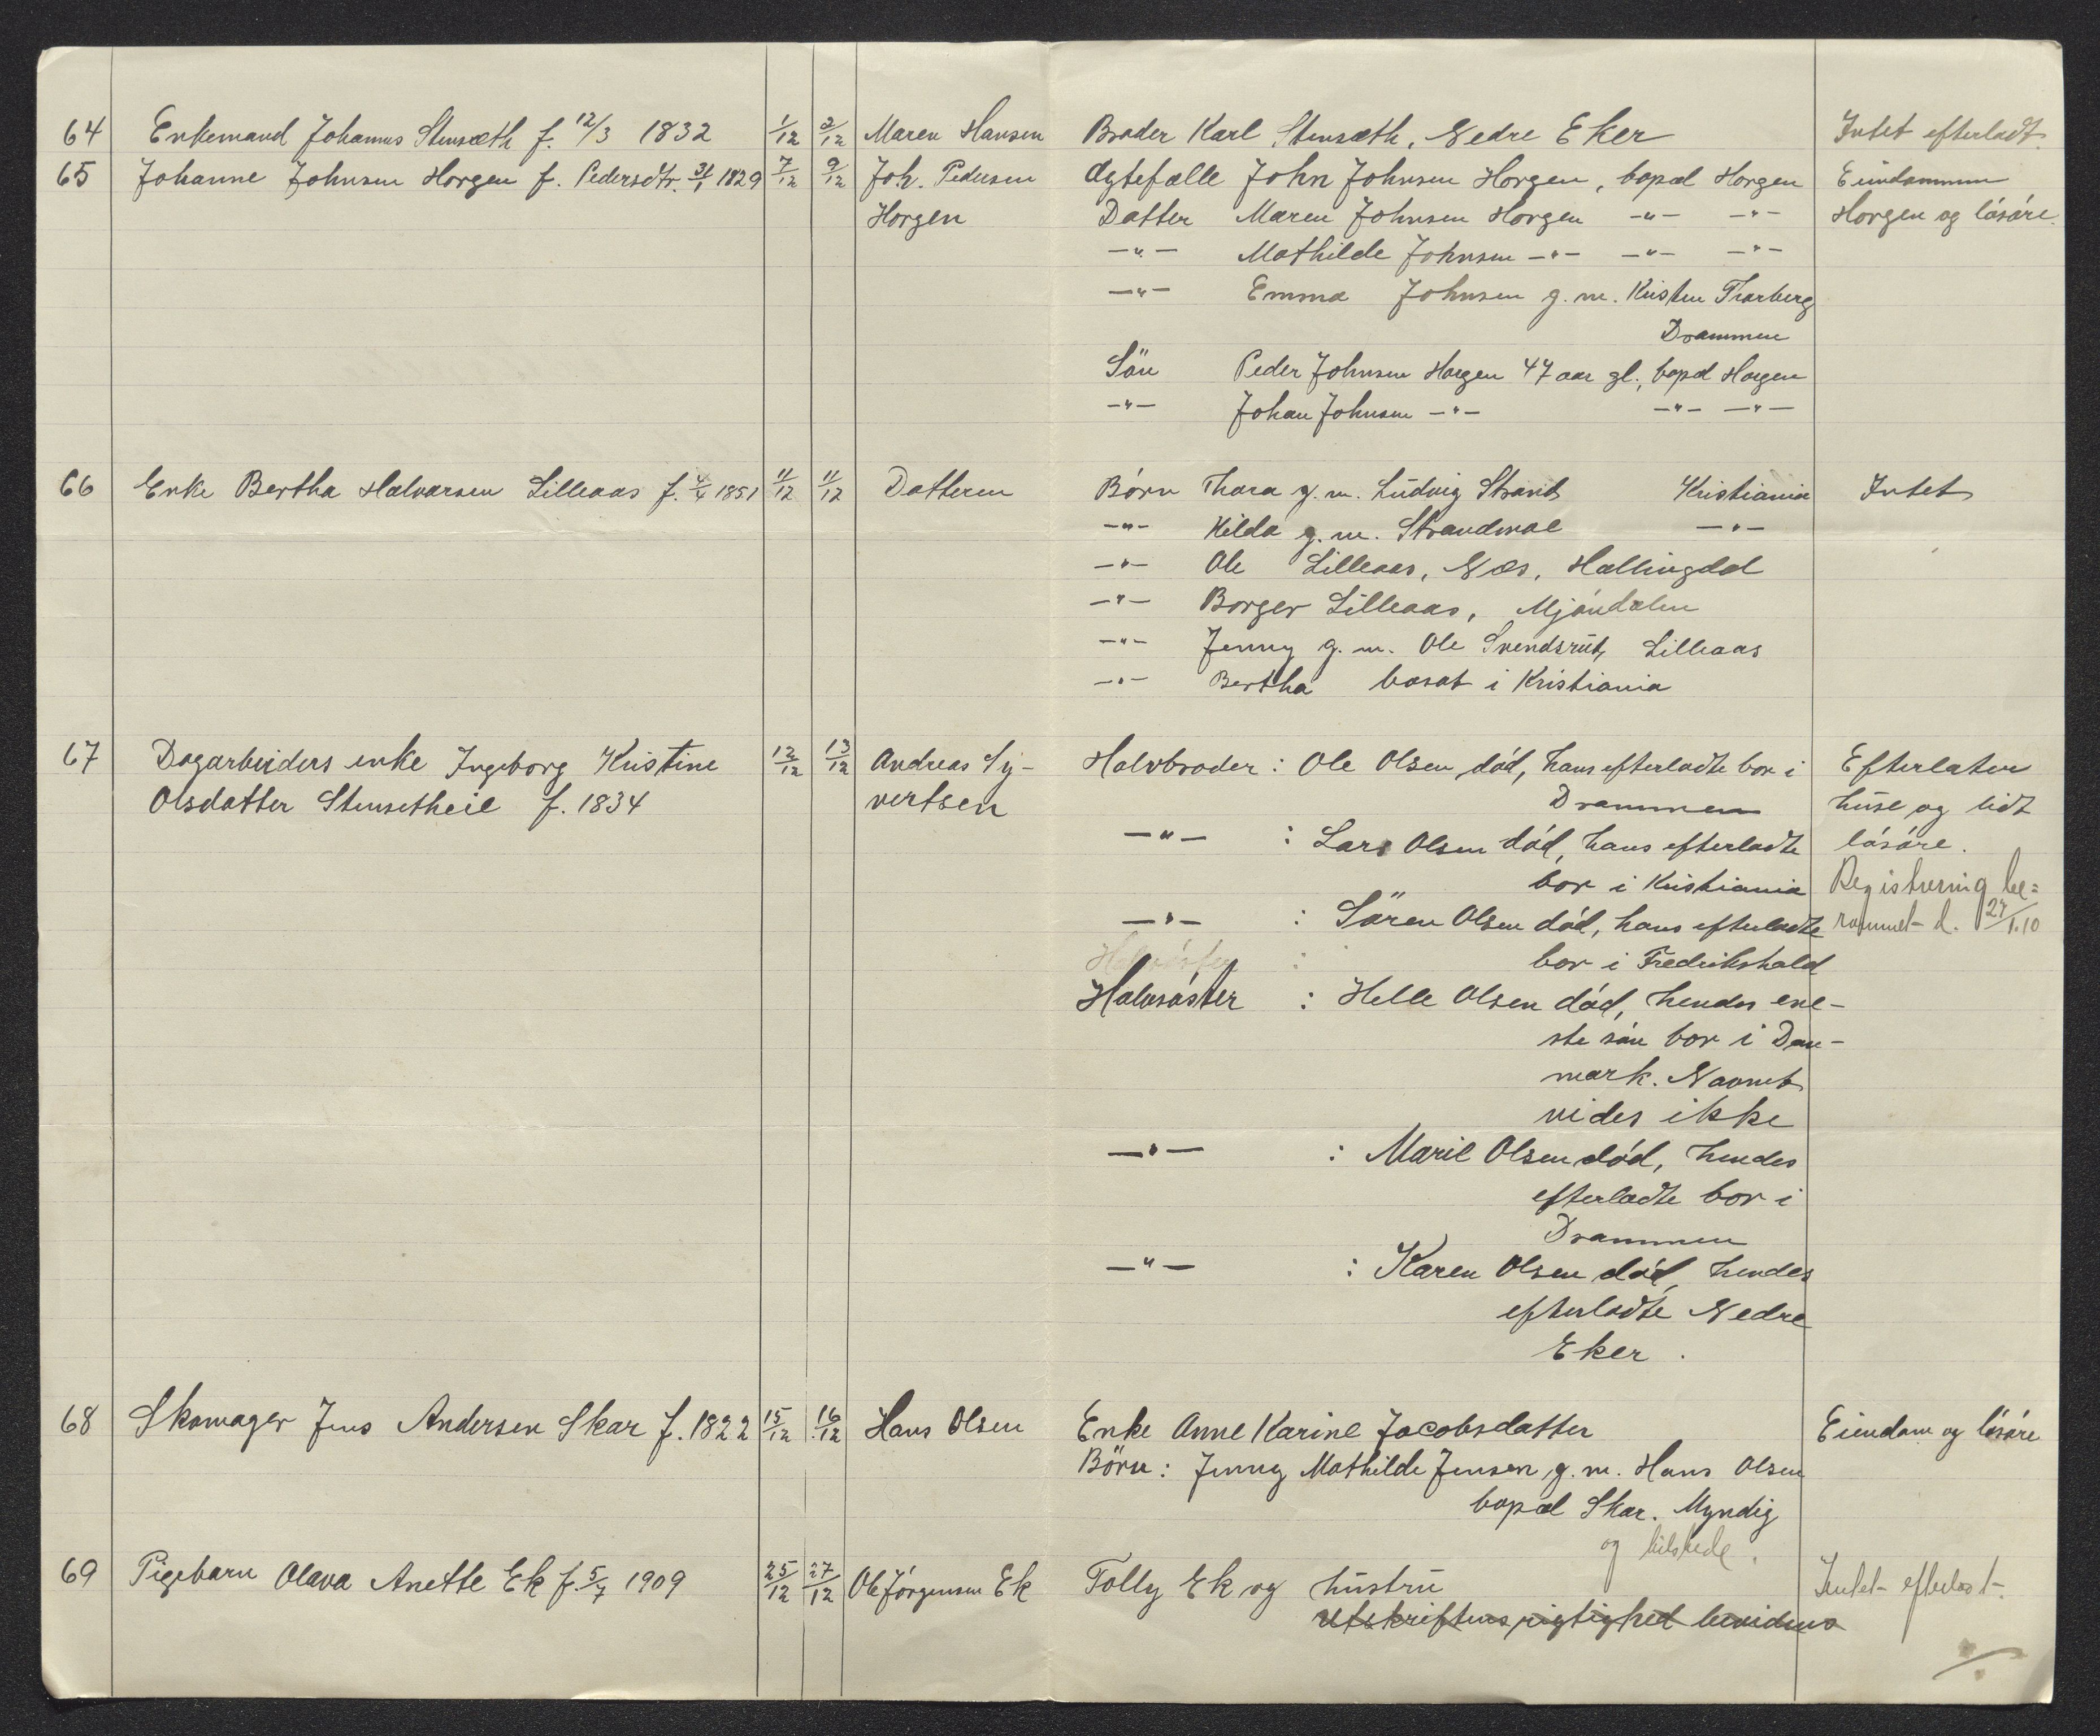 64 Enkemand Johannes Stensæth f. 12/3 1832 1/12 2/12 Maren Hansen Broder Karl Stensæth, Nedre Eker Intet efterladt.
65 Johanne Johnsen Horgen f. Pedersdtr. 31/1 1829 7/12 9/12 Joh. Pedersen Ægtefælle John Johnsen Horgen, bopæl Horgen Eiendommen
Horgen Datter Maren Johnsen Horgen -"- -"- Horgen og løsøre.
-"- Mathilde Johnsen -"- -"- -"-
-"- Emma Johnsen g.m. Kristen Thorberg
Drammen
Sön Peder Johnsen Horgen 47 aar gl., bopæl Horgen
-"- Johan Johnsen -"- -"- -"-
66 Enke Bertha Halvorsen Lilleaas f. 4/4 1851 11/12 11/12 Datteren Børn Thora g.m. Ludvig Strand Kristiania Intet
-"- Hilda g.m. Strandmoe -"-
-"- Ole Lilleaas, Næs, Hallingdal
-"- Borger Lilleaas, Mjøndalen
-"- Jenny g.m. Ole Svendsrud, Lilleaas
-"- Bertha bosat i Kristiania
67 Dagarbeiders enke Ingeborg Kristine 12/12 13/12 Andreas Sy- Halvbroder: Ole Olsen død, hans efterladte bor i Efterlater
Olsdatter Stensetheie f. 1834 vertsen Drammen huse og lidt
-"- : Lars Olsen død, hans efterladte løsøre.
bor i Kristiania Registrering be=
-"- : Sören Olsen død, hans efterladte rammet d. 27/1.10
bor i Fredrikshald
Halvsøster : Helle Olsen død, hendes ene-
ste søn bor i Dan-
mark. Navnet
vides ikke
-"- : Marie Olsen død, hendes
efterladte bor i
Drammen
-"- : Karen Olsen død, hendes
efterladte Nedre
Eker.
68 Skomager Jens Andersen Skar f. 1822 15/12 16/12 Hans Olsen Enke Anne Karine Jacobsdatter Eiendom og løsøre
Börn: Jenny Mathilde Jensen g.m. Hans Olsen
bopæl Skar. Myndig
og tilstede.
69 Pigebarn Olava Anette Ek f. 5/7 1909 25/12 27/12 Ole Jørgensen Ek Tolly Ek og hustru Intet efterladt.
Utskriftens rigtighed bevidnes